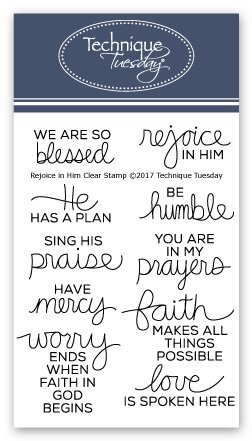 Technique
Tuesday®
WE ARE SO
blessed
rejoice
IN HIM
Rejoice in Him Clear Stamp ©2017 Technique Tuesday
He
HAS A PLAN
BE
humble
SING HIS
praise
YOU ARE
IN MY
prayers
HAVE
mercy
faith
MAKES ALL
THINGS
POSSIBLE
worry
ENDS
WHEN
FAITH IN
GOD
BEGINS
love
IS SPOKEN HERE